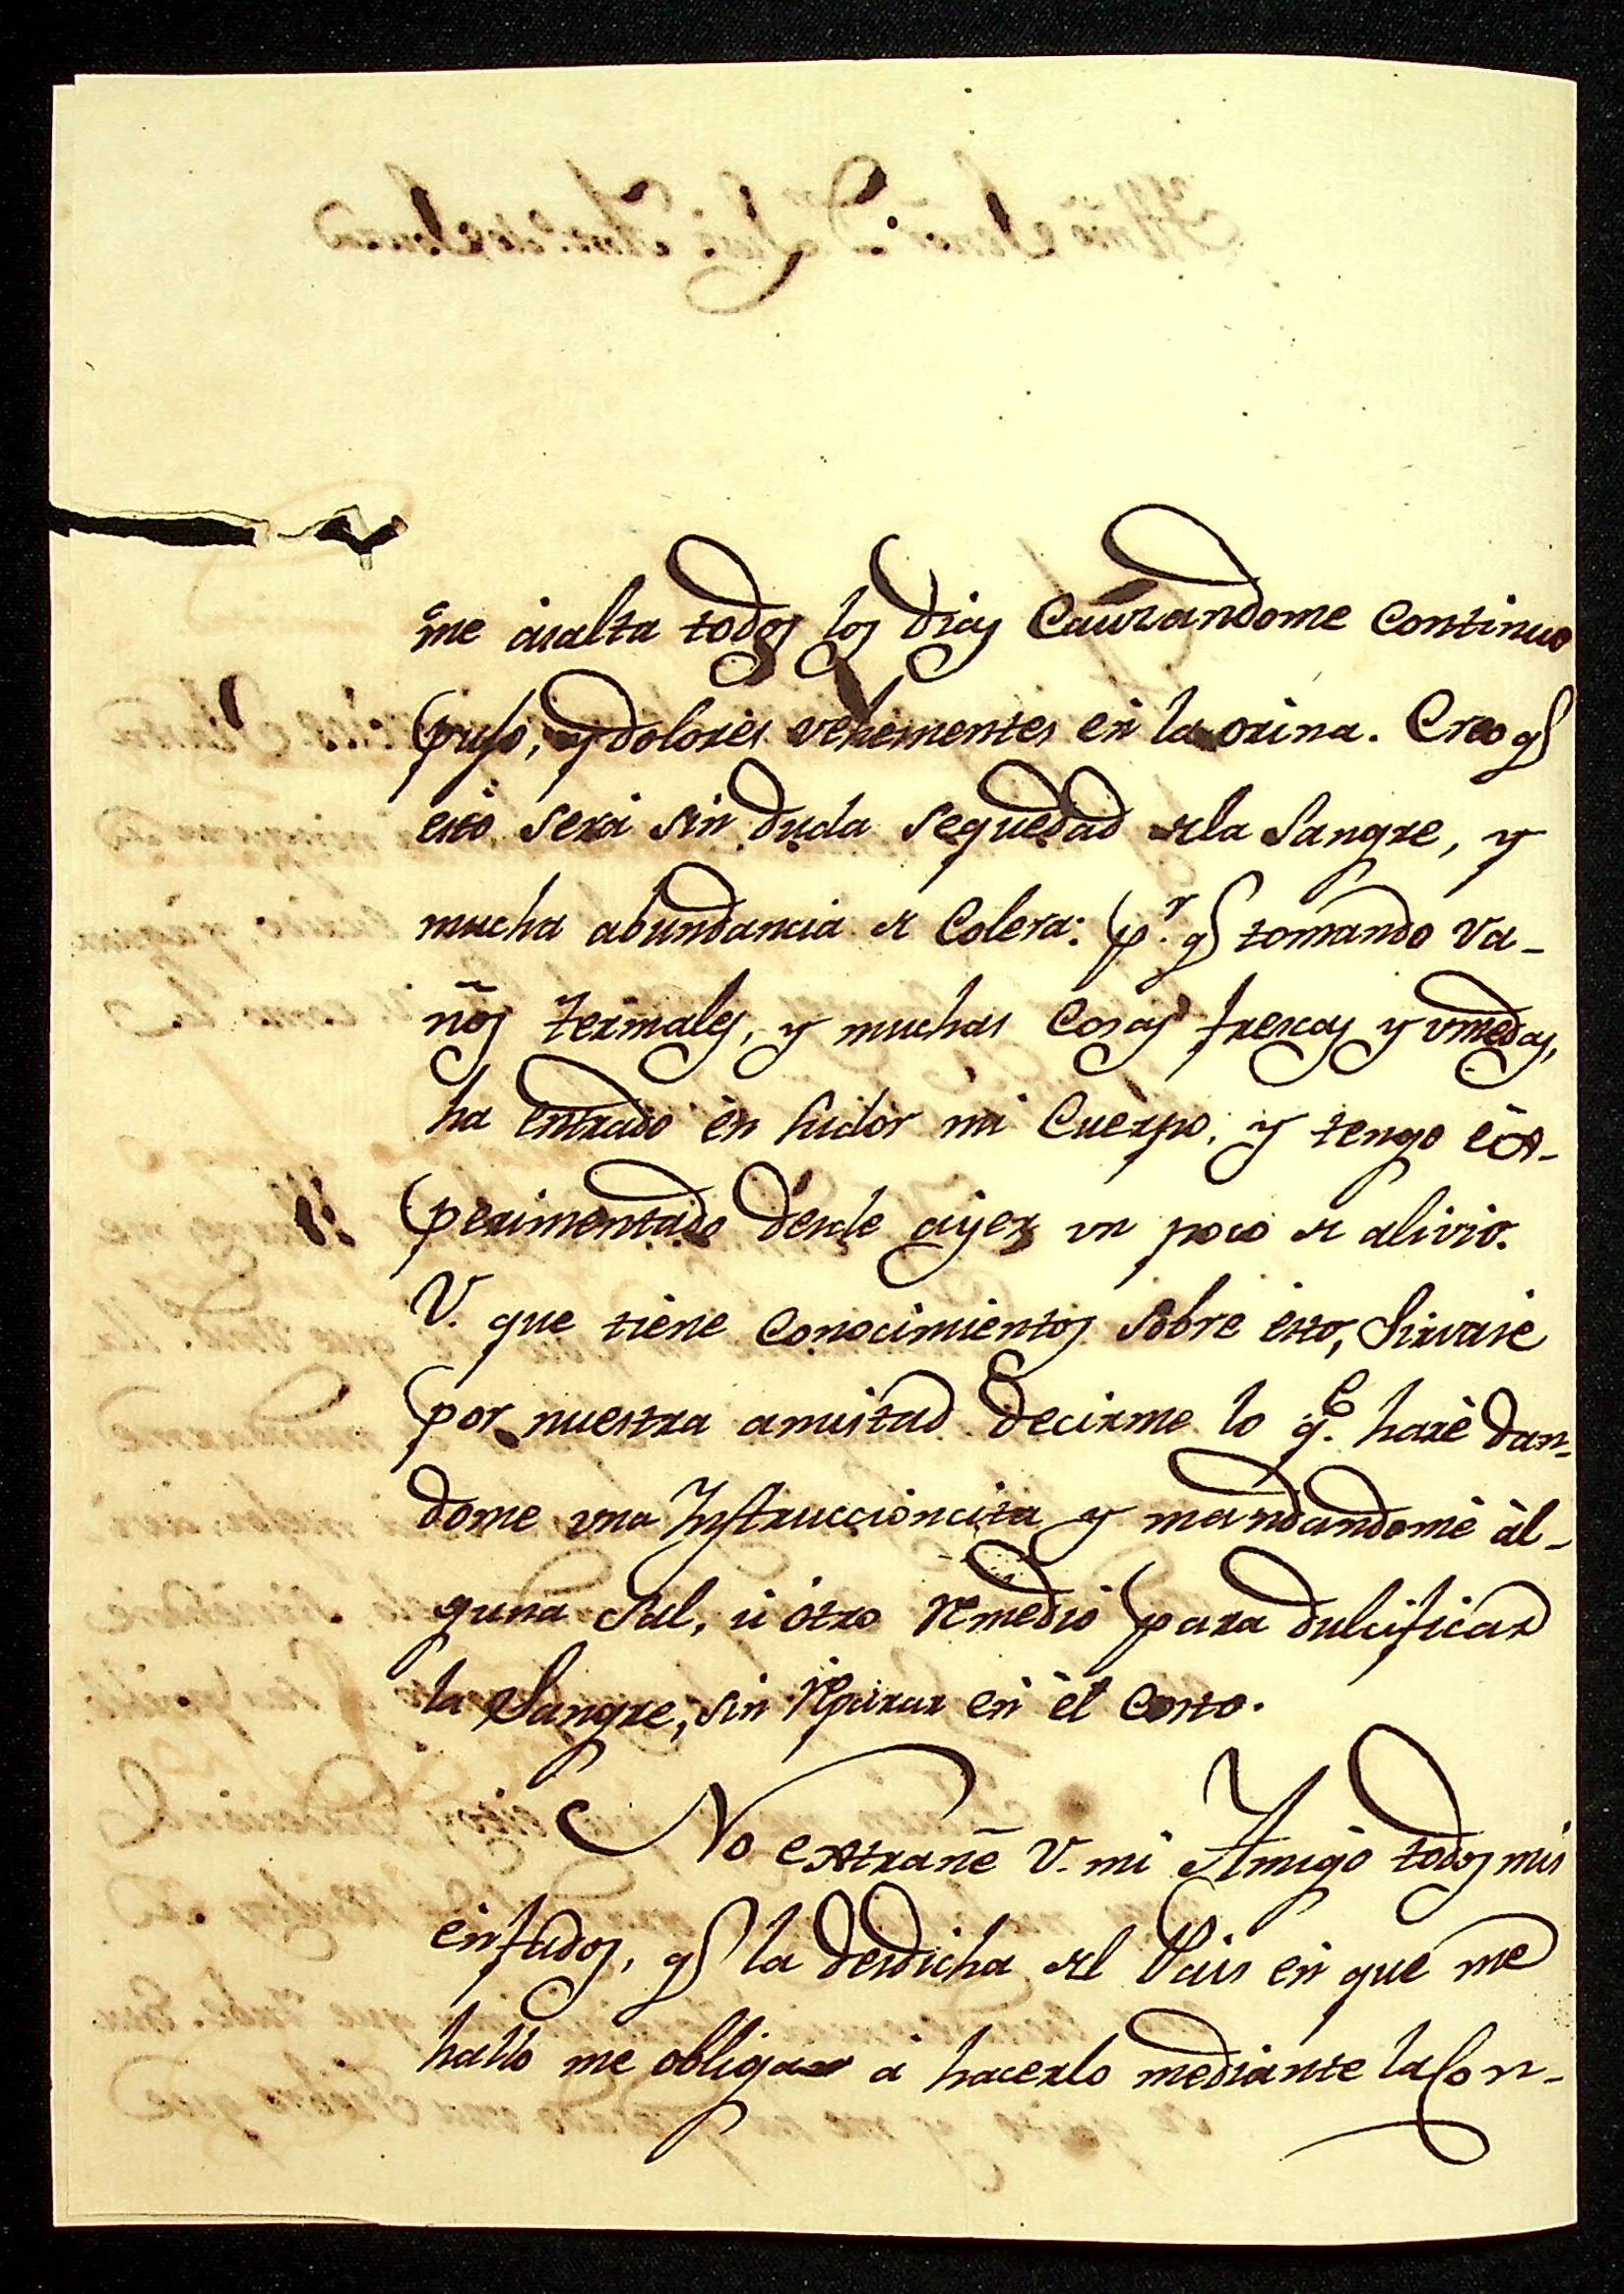 me asalta todos los dias Causandome Continuo
pujo, y dolores vehementes en la orina. Creo q
esto será sin duda sequedad de la Sangre, y
mucha abundancia de Colera: p.r q tomando va-
ños termales, y muchas Cosas frescas y umedas,
ha entrado èn sudor mi Cuerpo, y tengo èx-
perimentado desde ayer un poco de alivio.
V. que tiene Conocimientos sobre esto, Sirvase
por nuestra amistad decirme lo q.e harè dan-
dome una Instruccioncita y mandandomè àl-
guna Sal, ù òtro remedio para dulcificar
la Sangre, sin reparar en èl Costo.
No extrañe V. mi Amigo todos mis
enfados, q la desdicha del Pais en que me
hallo me obligan à hacerlo mediante la Con-